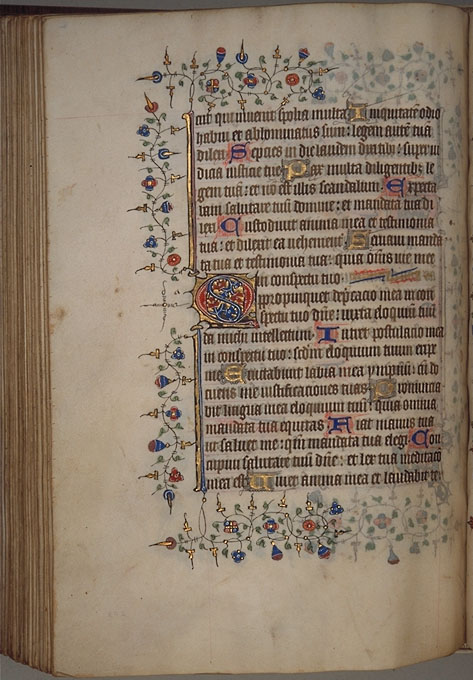 cut qui inuenit spolia multa Iniquitatē odio
habui et abhominatus sum: legem autē tuā
dilexi Sepcies in die laudem dixi tibi: super iu
dicia iusticie tue Pax multa diligentibꝫ le
gem tuā: et nō est illis scandalum Expecta
bam salutare tuum domine: et mandata tua di
lexi Custodiuit anima mea et testimonia
tua: et dilexit ea uehementer Seruaui manda
ta tua et testimonia tua: quia om̄s uie mee
in conspectu tuo:
Apropinquet dep̄catio mea in con
spectu tuo dn̄e: iuxta eloquium tuum
da michi intellectum Intret postulatio mea
in conspectu tuo: scd̄m eloquium tuum eripe
Eructabunt labia mea ympnū: cū do
cueris me iustificationes tuas Pronuncia
bit lingua mea eloquium tuū: quia omnia
mandata tua equitas Fiat manus tua
ut saluet me: qm̄ mandata tua elegi Con
cupiui salutare tuū dn̄e: et lex tua meditacō
mea est Uiuet anima mea et laudabit te